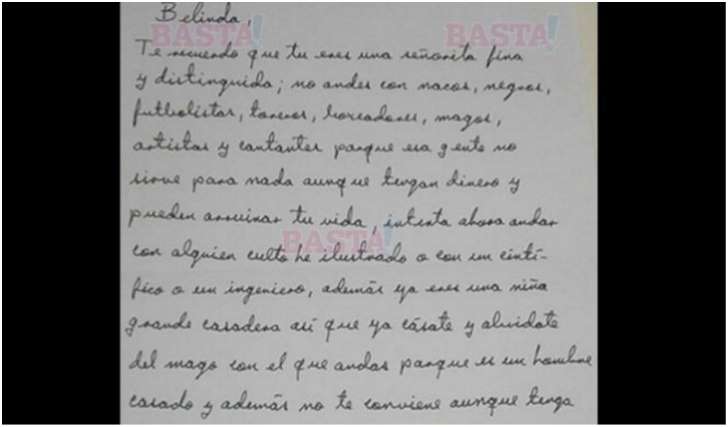 Belinda,
BASTA! BASTA!
Te recuerdo que tu eres una señorita fina
y distinguida; no andes con nacos, negros,
futbolistas, toreros, boxeadores, magos,
artistas y cantantes porque esa gente no
sirve para nada aunque tengan dinero y
pueden arruinar tu vida, intenta ahora andar
BASTA!
con alguien culto he ilustrado o con un cintí-
fico o un ingeniero, además ya eres una niña
grande casadera así que ya cásate y olvidate
del mago con el que andas porque es un hombre
casado y además no te conviene aunque tenga